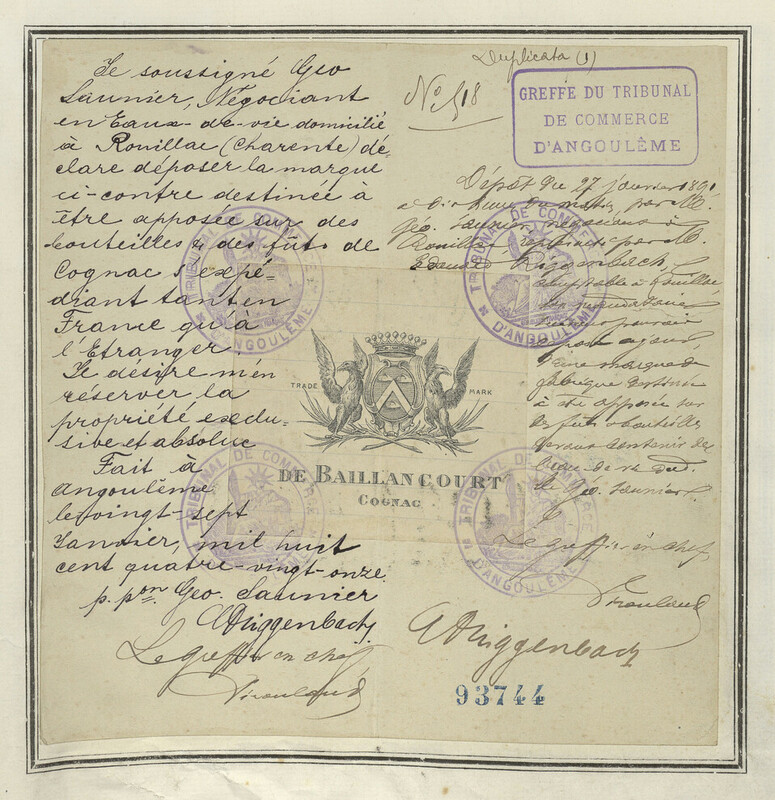 Duplicata (1)
No 518
GREFFE DU TRIBUNAL
DE COMMERCE
D'ANGOULÊME
Je soussigné Geo
Saunier, Négociant
en Eaux-de-vie domicilié
à Rouillac (Charente) dé-
clare déposer la marque
ci-contre destinée à
être apposée sur des
bouteilles & des fûts de
Cognac s'expé-
diant tant en
France qu'à
l'Etranger.
Je désire m'en
réserver la
propriété exclu-
sive et absolue
Fait à
Angoulême
le vingt-sept
Janvier, mil huit
cent quatre-vingt-onze.
p. pon. Geo. Saunier
Riggenbach
Le greffier en chef
TRADE MARK
DE BAILLANCOURT
COGNAC
Dépôt du 27 janvier 1891
à dix heures du matin, par M.
Géo. Saunier, négociant à
Rouillac, représenté par M.
Edouard Riggenbach,
comptable à Rouillac
d'une marque de
fabrique destinée
à être apposée sur
les fûts & bouteilles
devant contenir de
l'eau-de-vie dud.
Sr Géo. Saunier.
Le greffier en chef,
Riggenbach
93744
TRIBUNAL DE COMMERCE
D'ANGOULÊME
TRIBUNAL DE COMMERCE
D'ANGOULÊME
TRIBUNAL DE COMMERCE
D'ANGOULÊME
TRIBUNAL DE COMMERCE
D'ANGOULÊME